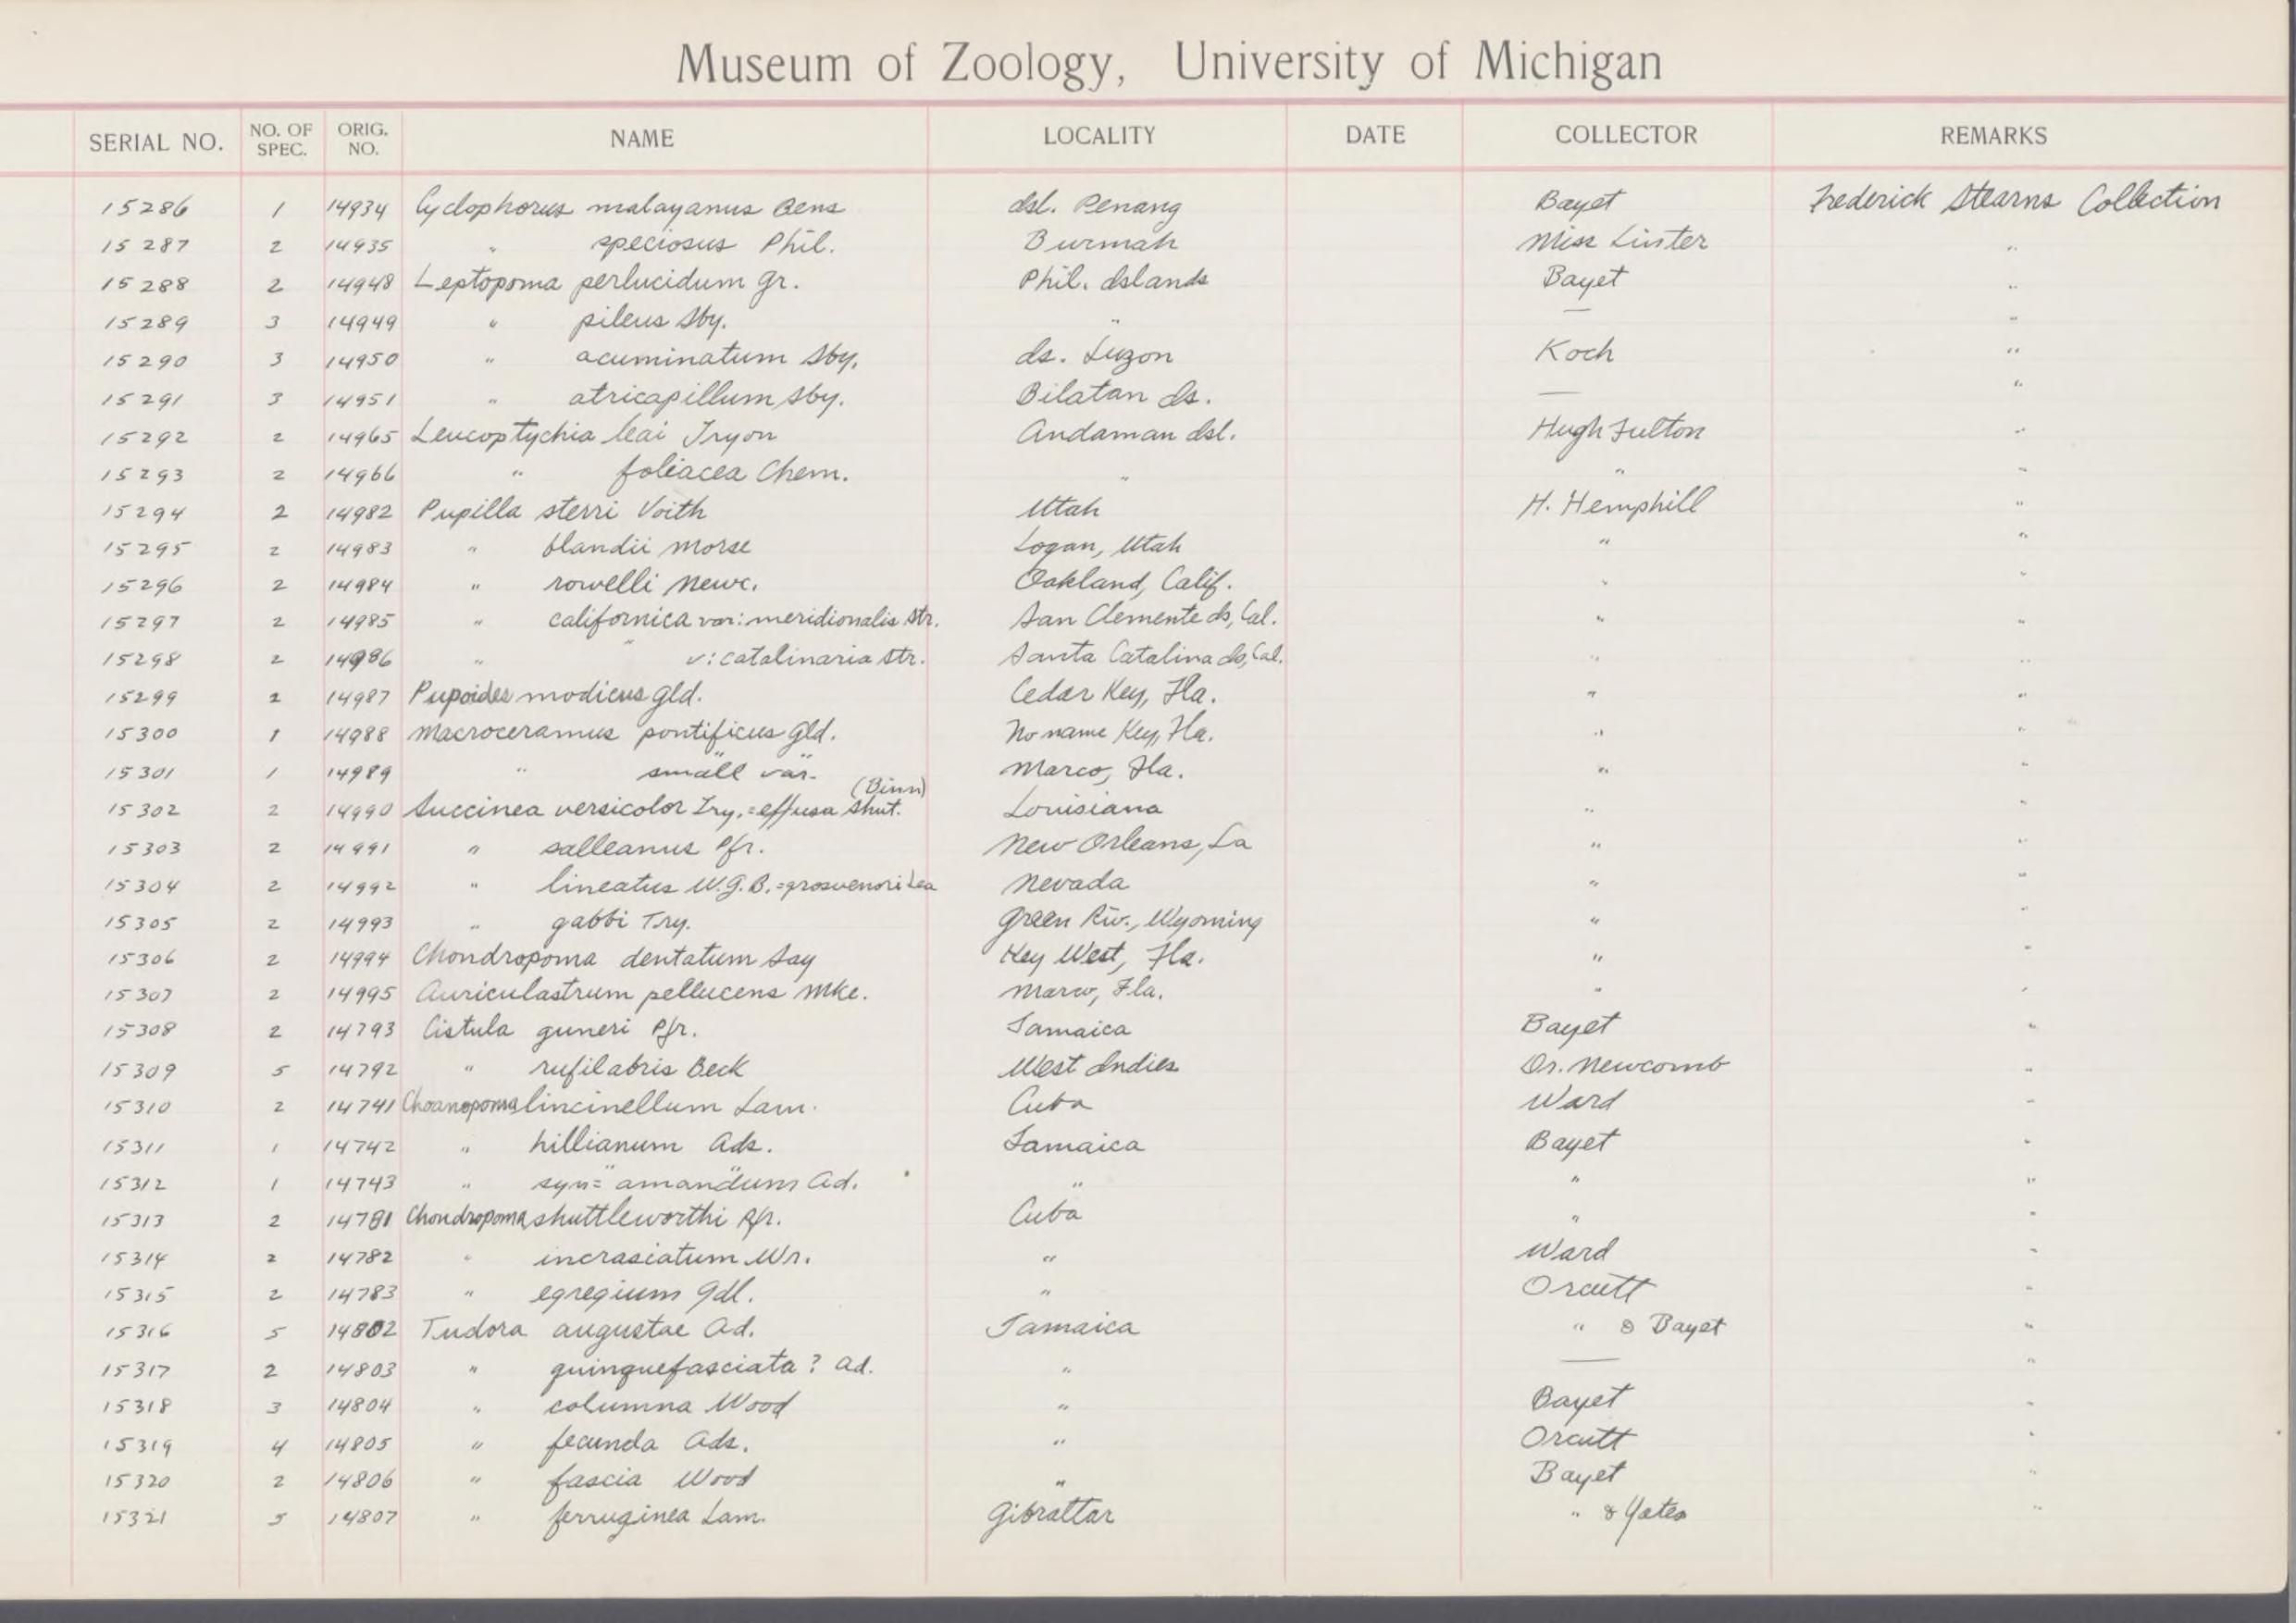 Museum of Zoology, University of Michigan
SERIAL NO. NO. OF SPEC. ORIG. NO. NAME LOCALITY DATE COLLECTOR REMARKS
15286 1 14934 Cyclophorus malayanus Bens Isl. Penang Bayet Frederick Stearns Collection
15287 2 14935 " speciosus Phil. Burmah Miss Linter "
15288 2 14948 Leptopoma perlucidum Gr. Phil. Islands Bayet "
15289 3 14949 " pileus Sby. " — "
15290 3 14950 " acuminatum Sby. Is. Luzon Koch "
15291 3 14951 " atricapillum Sby. Bilatan Is. — "
15292 2 14965 Leucoptychia leai Tryon Andaman Isl. Hugh Fulton "
15293 2 14966 " foliacea Chem. " " "
15294 2 14982 Pupilla sterri Voith Utah H. Hemphill "
15295 2 14983 " blandii Morse Logan, Utah " "
15296 2 14984 " rowelli Newc. Oakland, Calif. " "
15297 2 14985 " californica var: meridionalis Str. San Clemente Is, Cal. " "
15298 2 14986 " " v: catalinaria Str. Santa Catalina Is, Cal. " "
15299 2 14987 Pupoides modicus Gld. Cedar Key, Fla. " "
15300 1 14988 Macroceramus pontificus Gld. No name Key, Fla. " "
15301 1 14989 " " small var. Marco, Fla. " "
15302 2 14990 Succinea versicolor Try. = effusa Shut. (Binn) Louisiana " "
15303 2 14991 " salleanus Pfr. New Orleans, La " "
15304 2 14992 " lineatus W.G.B. = grosvenori Lea Nevada " "
15305 2 14993 " gabbi Try. Green Riv., Wyoming " "
15306 2 14994 Chondropoma dentatum Say Key West, Fla. " "
15307 2 14995 Auriculastrum pellucens Mke. Marco, Fla. " "
15308 2 14793 Cistula guneri Pfr. Jamaica Bayet "
15309 5 14792 " rufilabris Beck West Indies Dr. Newcomb "
15310 2 14741 Choanopoma lincinellum Lam. Cuba Ward "
15311 1 14742 " hillianum Ads. Jamaica Bayet "
15312 1 14743 " syn = " amandum Ad. " " "
15313 2 14781 Chondropoma shuttleworthi Pfr. Cuba " "
15314 2 14782 " incrasiatum Wr. " Ward "
15315 2 14783 " egregium Gdl. " Orcutt "
15316 5 14802 Tudora augustae Ad. Jamaica " & Bayet "
15317 2 14803 " quinquefasciata ? Ad. " — "
15318 3 14804 " columna Wood " Bayet "
15319 4 14805 " fecunda Ads. " Orcutt "
15320 2 14806 " fascia Wood " Bayet "
15321 5 14807 " ferruginea Lam. Gibraltar " & Yates "